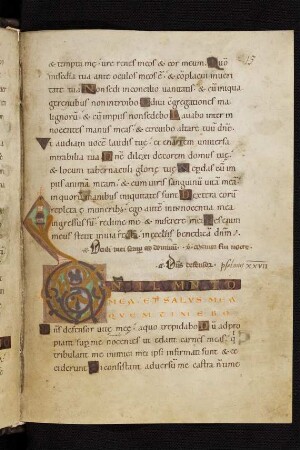 & tempta me ure renes meos & cor meum Qūo
misedia tua ante oculos meos ē & coplacui in ueri
tate tua Non sedi in concilio uanitatis & cū iniqua
gerentibus non introibo Odiui
lignorū & cū impiis non sedebo Lauabo inter in
nocētes manus meas & circūdabo altare tuū dn̄e
Vt audiam uocē laudis tuę & enarrem uniuersa
mirabilia tua Dn̄e dilexi decorem domus tuę
& locum tabernaculi glorię tuę Ne pdas cū im
piis animā meam & cum uiris sanguinū uitā meā In
quorū manibus iniquitates sunt Dextera eorū
repleta ē muneribꝫ ego autē in innocentia mea
ingressus sū redime me & miserere mei Pes enim
meus stetit in uia recta in ęcclesiis benedicā dn̄m
psalmus xxvii
DN̄S ILLUMINATIO
MEA ET SALUS MEA
QUEM TIMEBO
Dn̄s defensor uitę meę a quo trepidabo Dū adpro
piant sup me nocentes ut edant carnes meas Qui
tribulant me inimici mei ipsi infirmati sunt & ce
ciderunt Si consistant aduersū me castra n̄ time